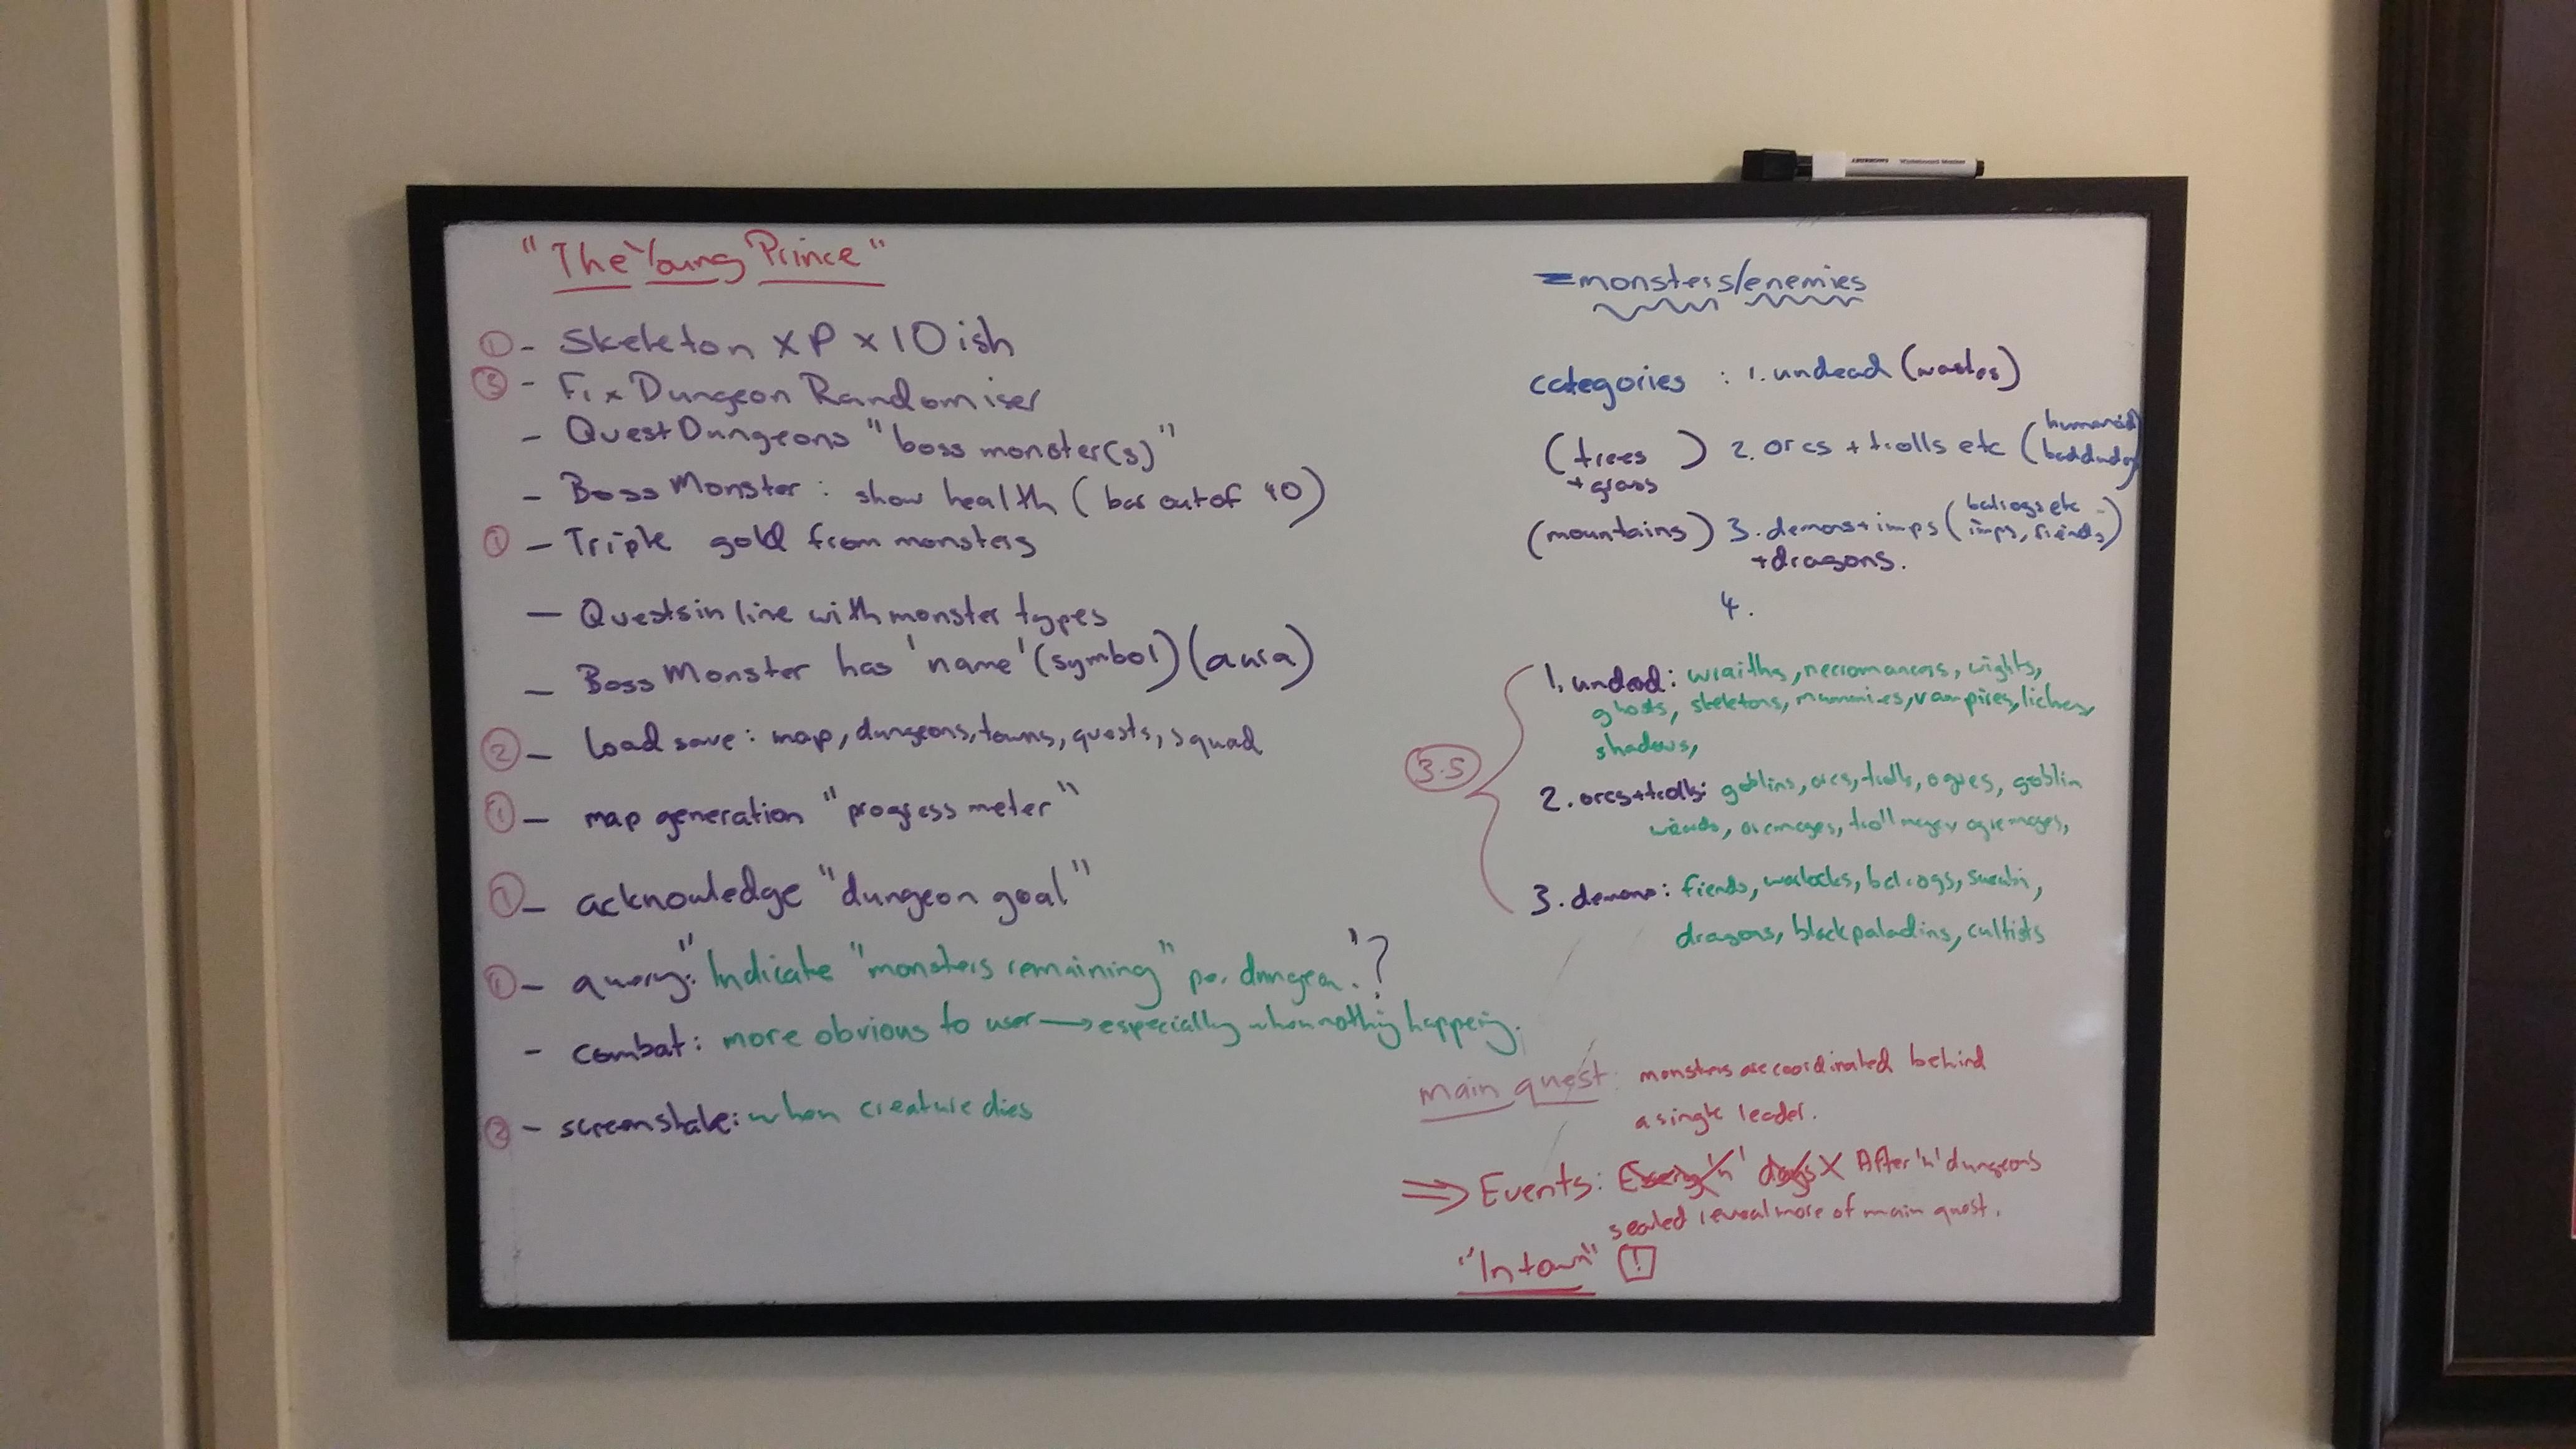 "The Young Prince"
① - Skeleton XP x 10ish
③ - Fix Dungeon Randomiser
- Quest Dungeons "boss monster(s)"
- Boss Monster: show health (bar out of 40)
① - Triple gold from monsters
- Quests in line with monster types
- Boss Monster has 'name' (symbol) (aura)
② - load save: map, dungeons, towns, quests, squad
① - map generation "progress meter"
① - acknowledge "dungeon goal"
① - query: "Indicate "monsters remaining" per dungeon."?
- combat: more obvious to user → especially when nothing happening.
② - screenshake: when creature dies
monsters/enemies
categories : 1. undead (wastes)
(trees + grass) 2. orcs + trolls etc (humanoid baddudes)
(mountains) 3. demons + imps (balrogs etc imps, fiends)
+ dragons.
4.
3.5
1. undead: wraiths, necromancers, wights,
ghosts, skeletons, mummies, vampires, liches,
shadows,
2. orcs + trolls: goblins, orcs, trolls, ogres, goblin
orcmages, trollmages, ogremages,
3. demons: fiends, warlocks, balrogs, succubi,
dragons, blackpaladins, cultists
main quest: monsters are coordinated behind
a single leader.
⇒ Events: Every 'n' days X After 'n' dungeons
sealed reveal more of main quest.
"In town" !
Whiteboard Marker